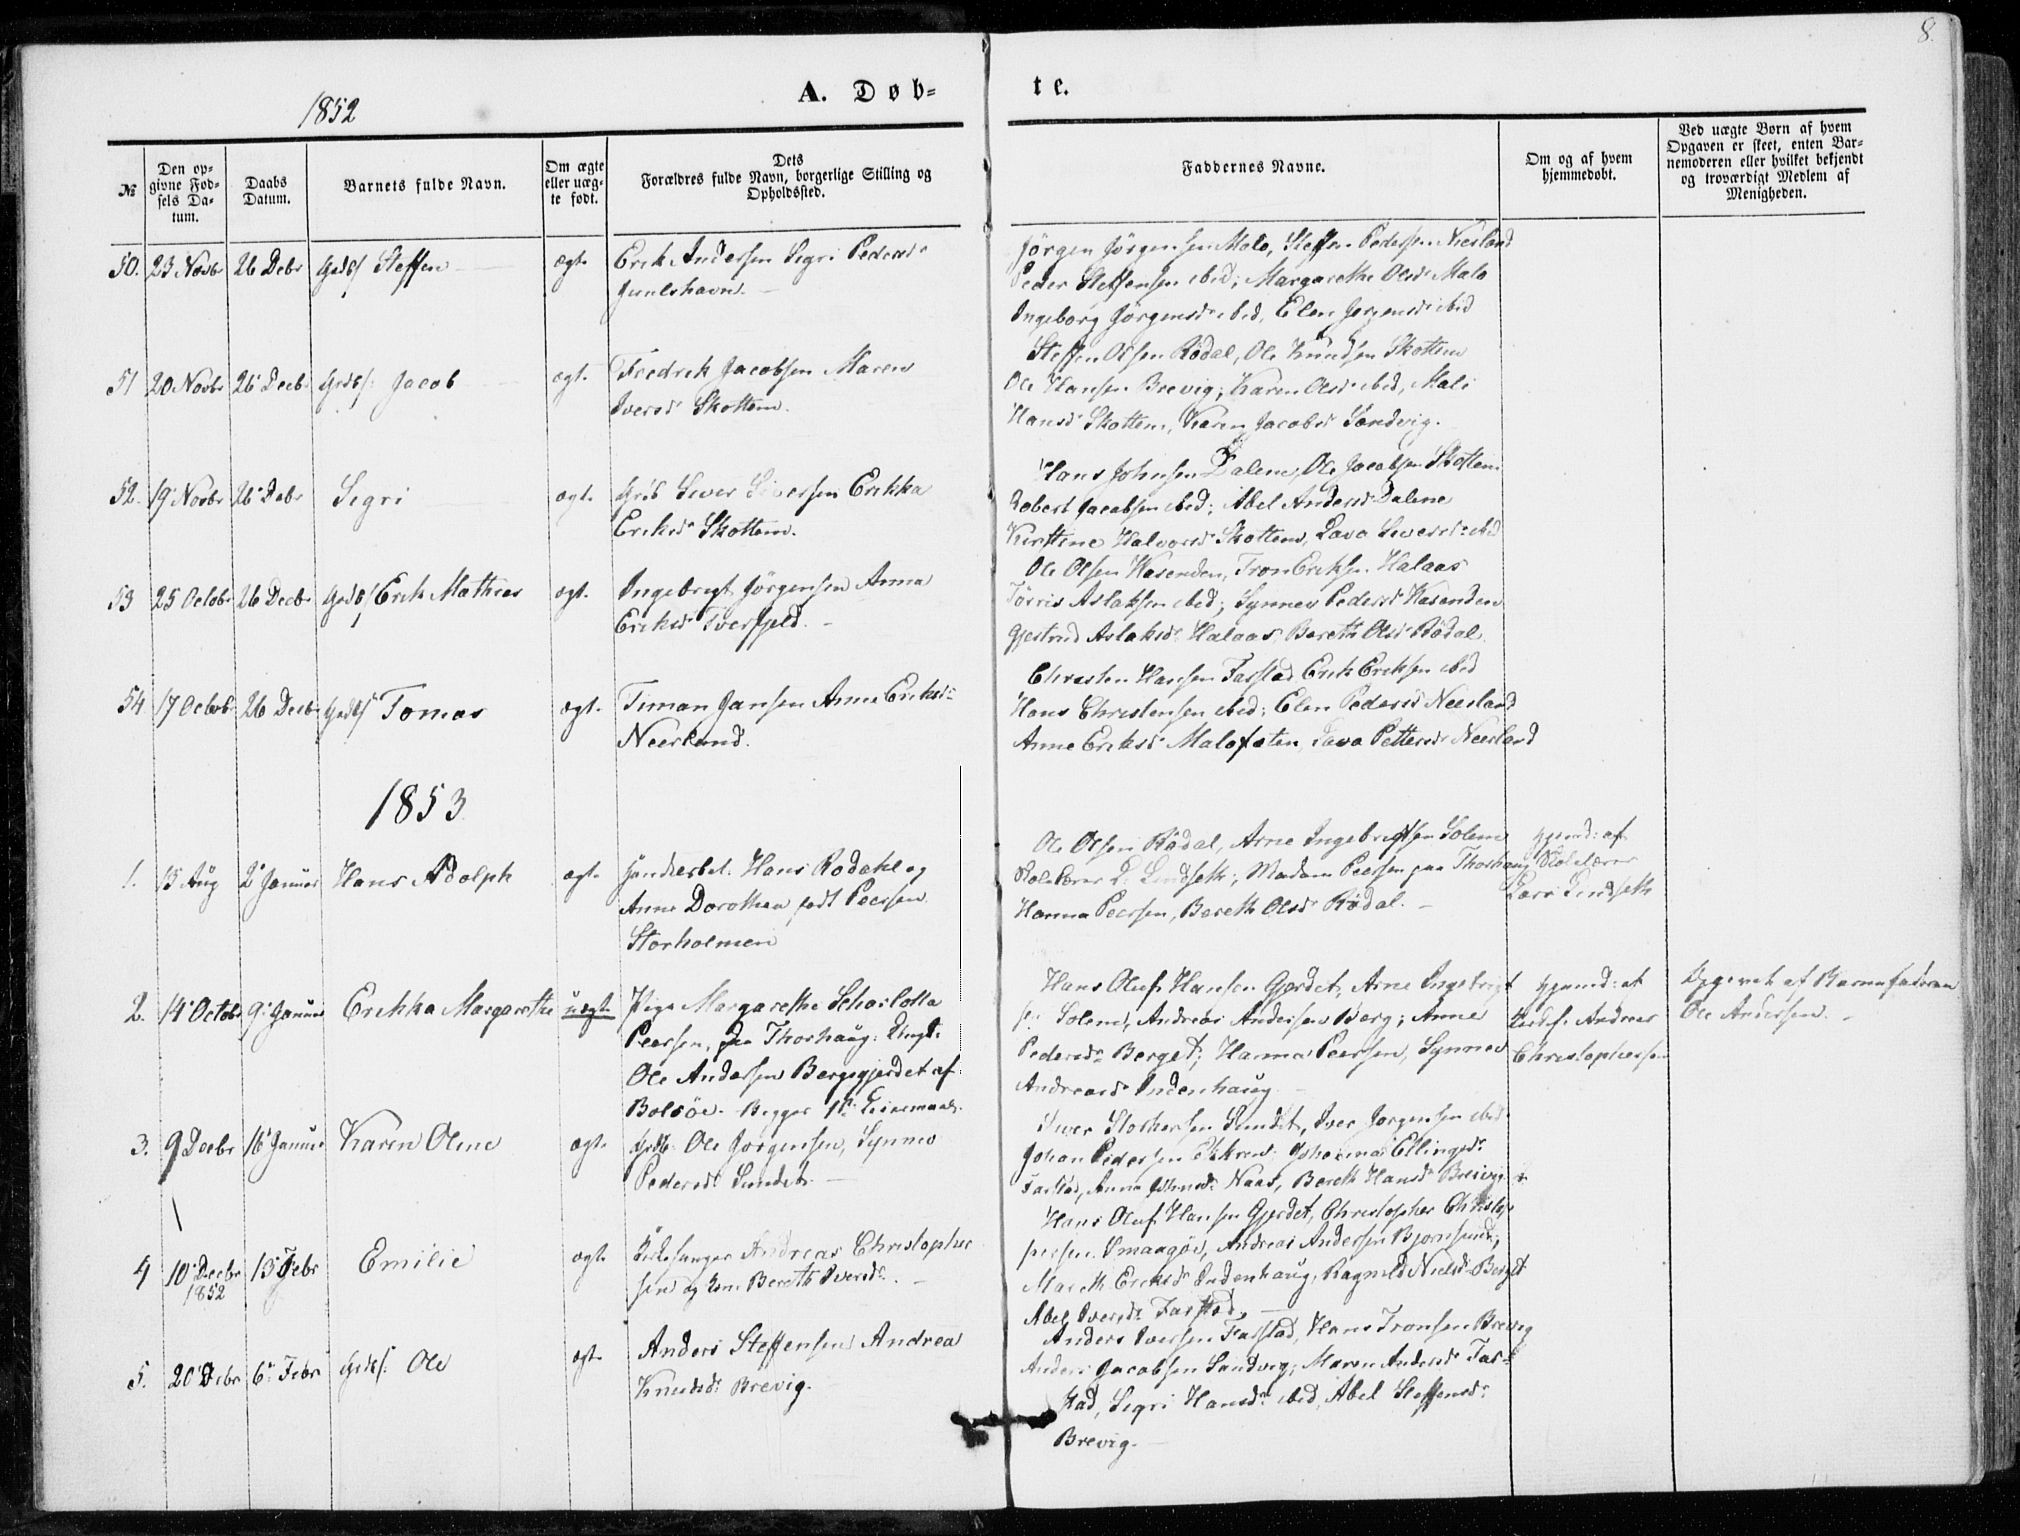 8.
1852
A. Døb-
te.
№
Den op-
givne Fød-
sels Da-
tum.
Daabs
Datum.
Barnets fulde Navn.
Om ægte
eller uæg-
te født.
Dets
Forældres fulde Navn, borgerlige Stilling og
Opholdssted.
Faddernes Navne.
Om og af hvem
hjemmedøbt.
Ved uægte Børn af hvem
Opgaven er skeet, enten Bar-
nemoderen eller hvilket bekjendt
og troværdigt Medlem af
Menigheden.
50. 23 Novbr 26 Debr Steffen ægt.
Erik Andersen Segri Pedersdr
Jørgen Jørgensen Malo, Steffen Pedersen Neerland
Peder Steffensen ibid; Margarethe Olsdr Malo
Ingeborg Jørgensdr ibid, Elen Jørgensdr ibid
51 20 Novbr 26 Decb Jacob ægt.
Fredrik Jacobsen Maren
Iversdr Skottem.
Steffen Olsen Rødal, Ole Knudsen Skottem
Ole Hansen Brevig; Karen Olsdr ibid, Mali
Hansdr Skottem, Karen Jacobsd Sandvig.
52. 19 Novbr 26 Debr Segri ægt.
Sever Siversen Erikka
Eriksdr Skottem.
Hans Johnsen Dalene, Ole Jacobsen Skottem
Robert Jacobsen ibid; Abel Andersdr Dalene
Kirstine Halvorsd Skottem, Lava Seversdr ibid
53 25 Octobr 26 Decbr Erik Mathias ægt.
Ingebrigt Jørgensen Anna
Eriksdr Tverfjeld.
Ole Olsen Hasenden, Tron Eriksen Halaas
Tørris Aslaksen ibid; Synnev Pedersd Hasenden
Gjertrud Aslaksdr Halaas Bereth Olsdr Rødal.
54 17 Octobr 26 Decbr Tomas ægt.
Timan Jansen Anne Eriksdr
Neerland.
Christen Hansen Farstad Erik Eriksen ibid
Hans Christensen ibid; Elen Pedersd Neerland
Anne Eriksdr Malofeten, Lava Pettersdr Neerland
1853
1. 15 Aug 2 Januar Hans Adolph ægt.
Handlesbet. Hans Rodahl og
Anne Dorothea født Peersen
Storholmen
Ole Olsen Rødal, Arne Ingebrigtsen Solem
Skolelærer L. Lindseth; Madam Peersen paa Thorhaug
Hanna Peersen, Bereth Olsdr Rødal.
Hjemd: af
Skolelærer
Lars Lindseth
2. 14 Octobr 9 Januar Erikka Margarethe uægt
Pige Margarethe Scharlotta
Peersen, paa Thorhaug: Ungk:
Ole Andersen Bergsgjerdet af
Bolsøe. Begges 1ste Leiermaal.
Hans Oluf Hansen Gjerdet, Arne Ingebrigt
s: Solem, Andreas Andersen Berg; Anne
Pedersdr Berget; Hanna Peersen, Synnev
Andreasdr Indenhaug.
Hjemd: af
Andreas
Christophersen
Opgivet af Barnefaderen
Ole Andersen.
3. 9 Decbr 16 Januar Karen Oline ægt.
Ole Jørgensen, Synnev
Pedersdr Sundet.
Iver Storkersen Sundet, Iver Jørgensen ibid
Johan Pedersen Ekkren. Johanna Ellingsdr
Farstad, Anna Naas, Bereth Hansdr Breivig
4 10 Decbr 1852 13 Febr Emilie ægt.
Kirkesanger Andreas Christopher
sen og Kone Bereth Iversdr.
Hans Oluf Hansen Gjerdet, Christopher Christop
persen Smaagøe, Andreas Andersen Bjørnsund;
Mareth Eriksdr Indenhaug, Ragnild Nielsdr Berget
Abel Iversdr Farstad.
5. 20 Debr 6 Febr Ole ægt.
Anders Steffensen Andrea
Knudsdr Brevig.
Anders Iversen Farstad, Hans Tronsen Brevig
Anders Jacobsen Sandvig; Maren Andersdr Far-
stad, Segri Hansdr ibid, Abel Steffensdr
Brevig.